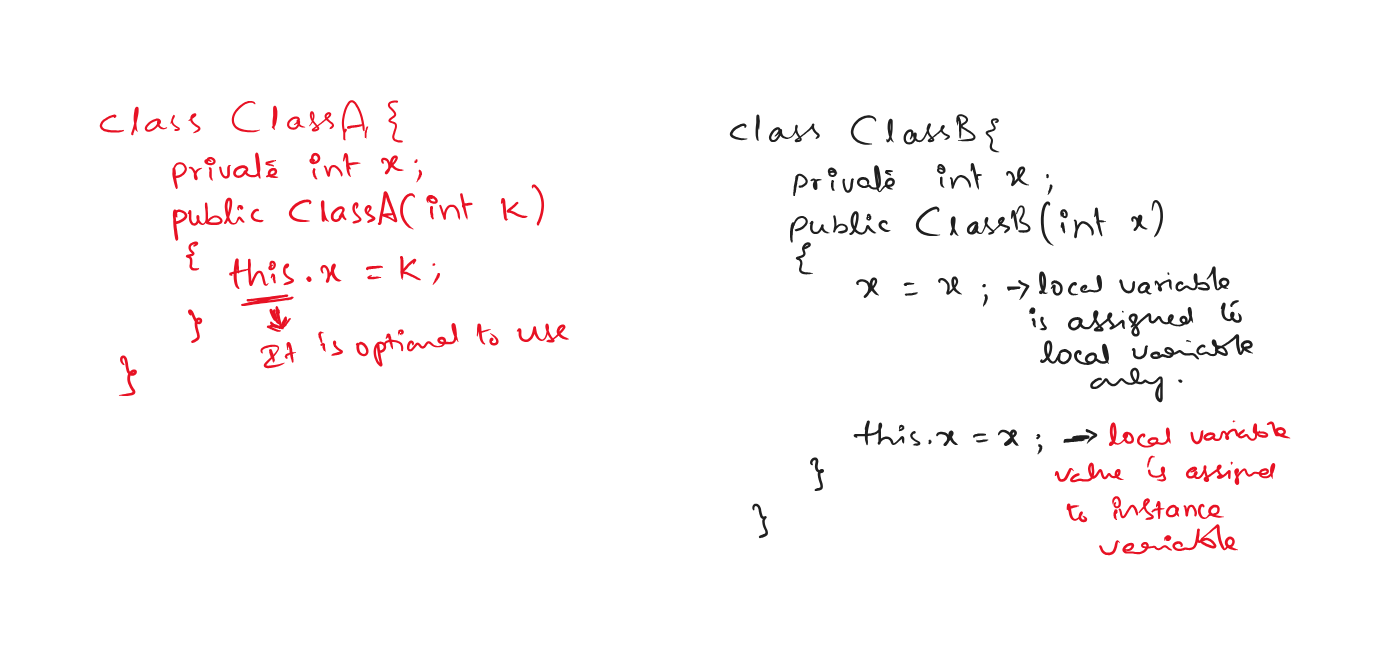 class ClassA {
private int x;
public ClassA(int k)
{
this.x = k;
}
It is optional to use
}
class ClassB{
private int x;
public ClassB(int x)
{
x = x; → local variable
is assigned to
local variable
only.
this.x = x; → local variable
value is assigned
to instance
variable
}
}